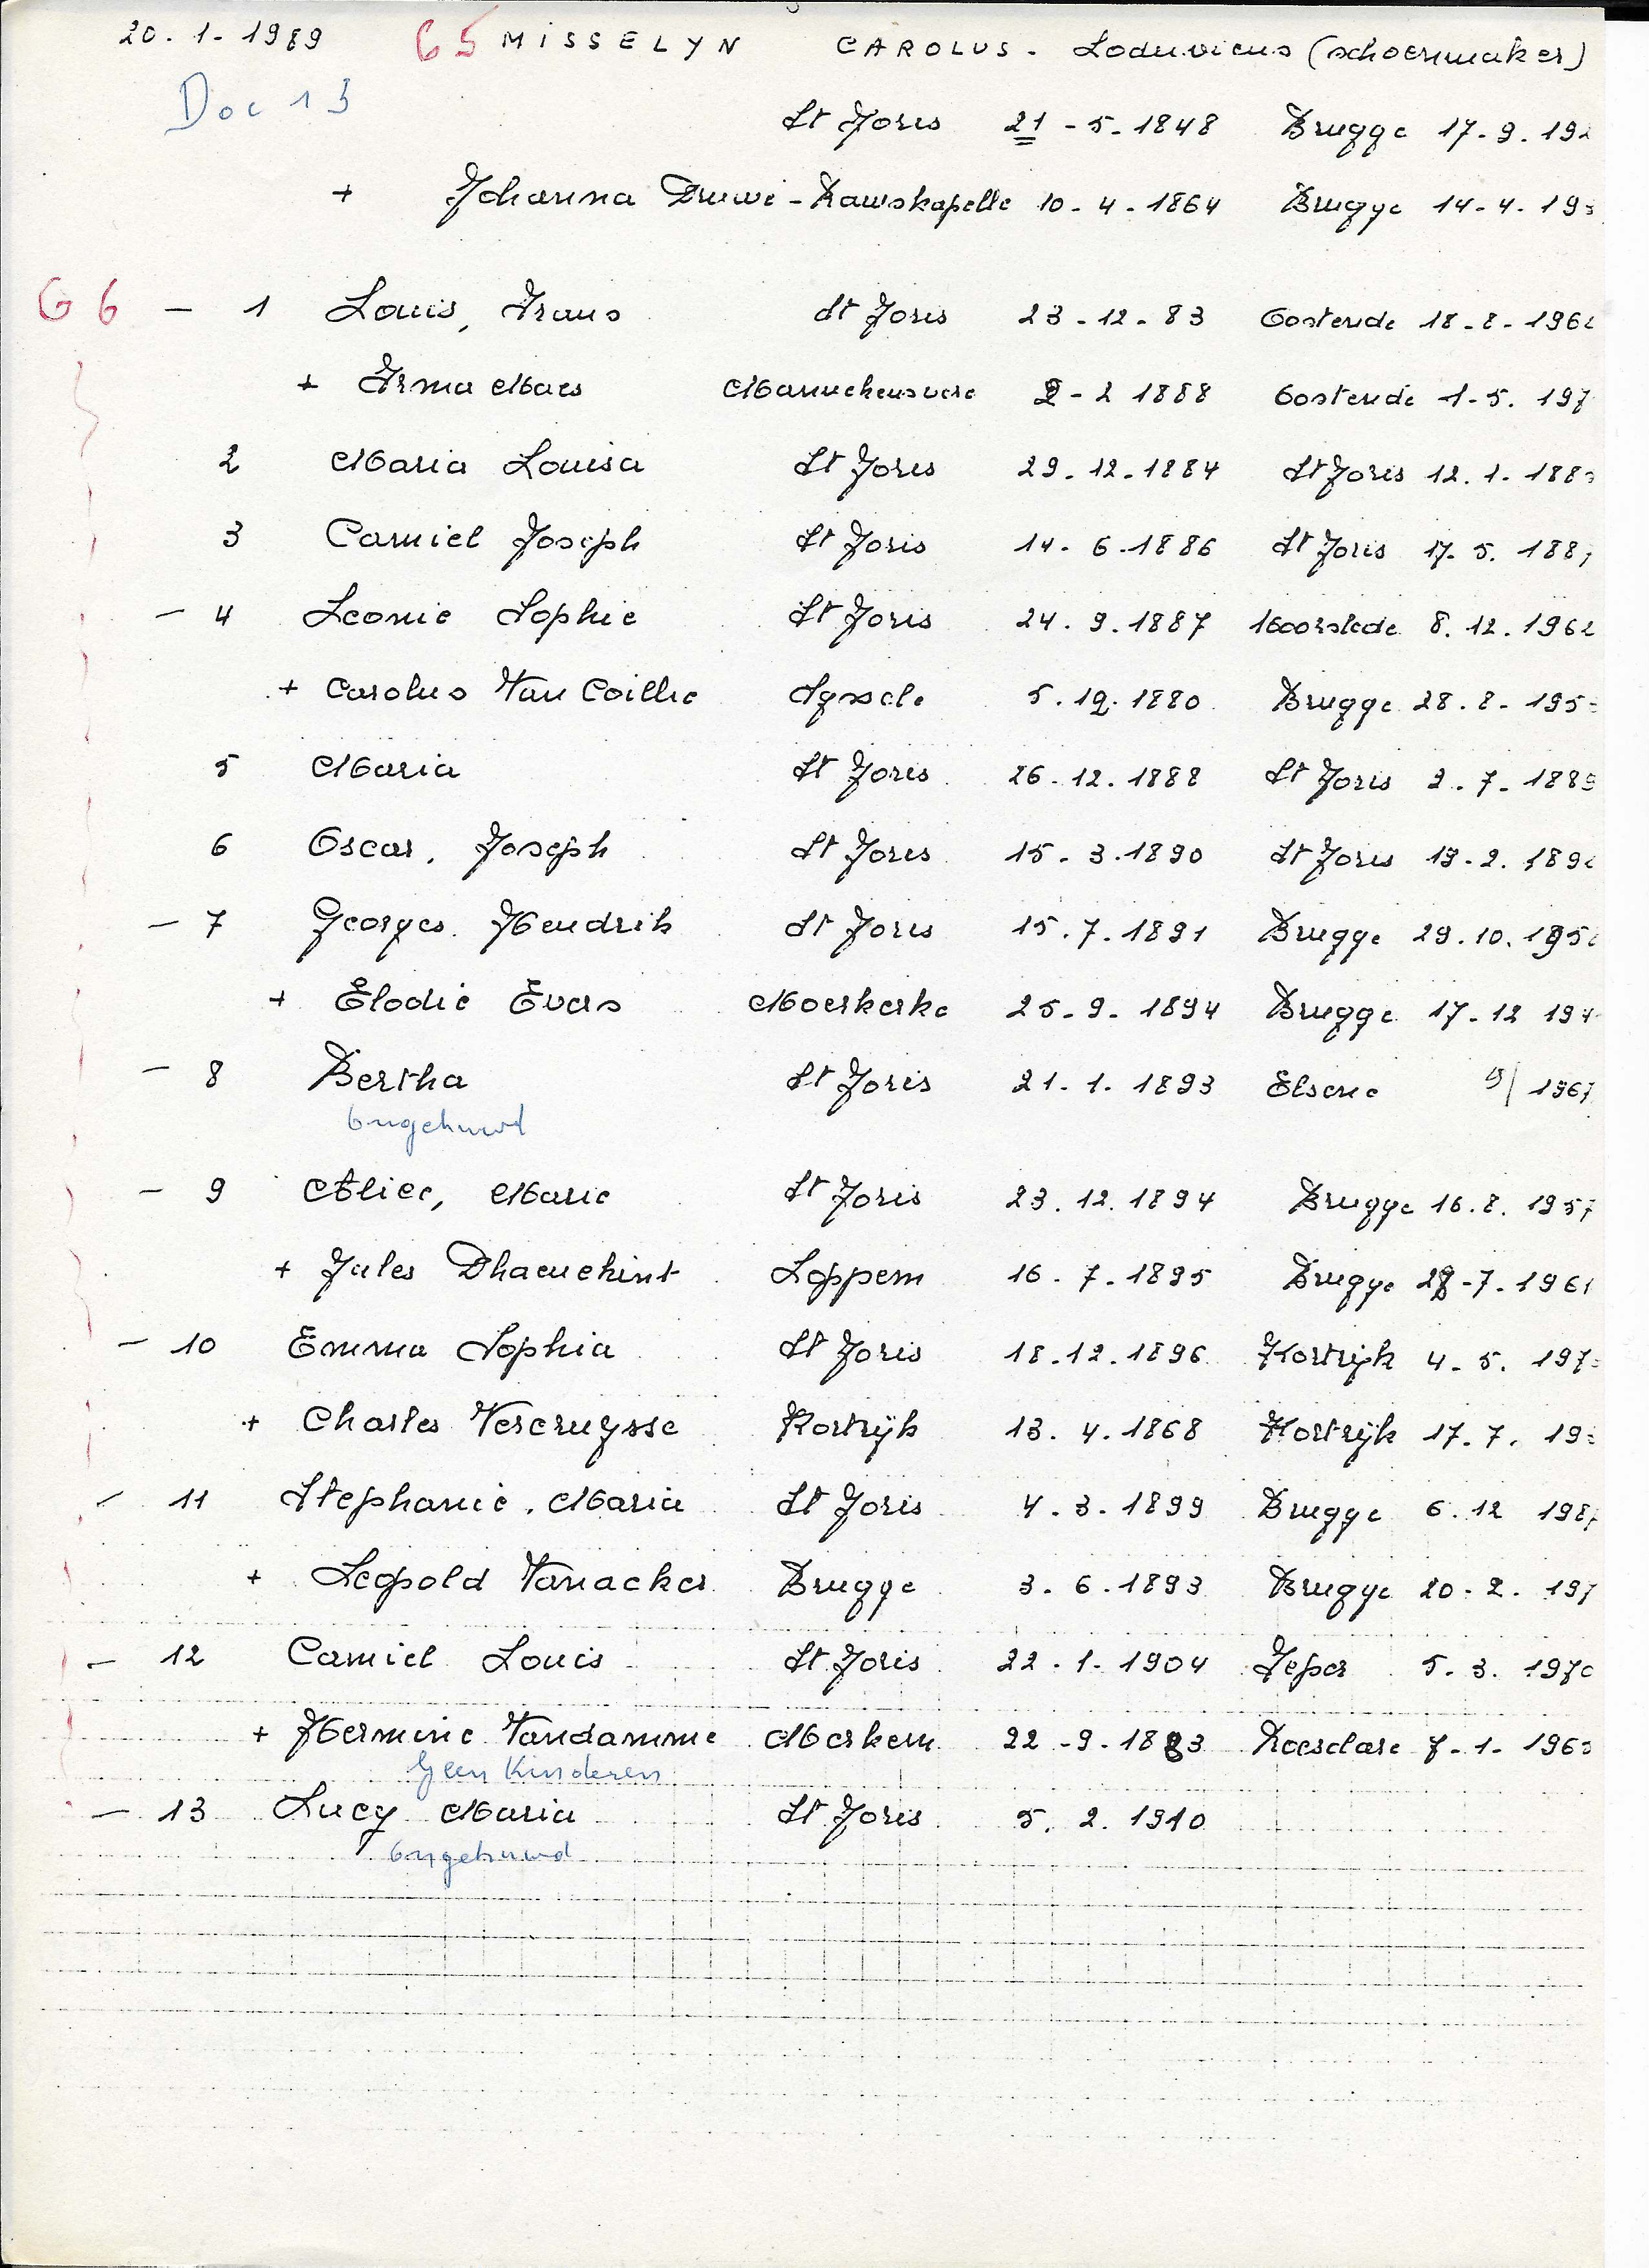 20.1.1989 G5 MISSELYN CAROLUS - Loduvicus (schoenmaker)
Doc 13
St Joris 21-5-1848 Brugge 17-9-19
+ Johanna Druwé - Ramskapelle 10-4-1864 Brugge 14-4-19
G6 - 1 Louis, Frans St Joris 23-12-83 Oostende 18-8-196
+ Irma Maes Mannekensvere 2-2 1888 Oostende 1-5-197
2 Maria Louisa St Joris 29.12.1884 St Joris 12.1.188
3 Camiel Joseph St Joris 14.6.1886 St Joris 17.5.188
- 4 Leonie Sophie St Joris 24.9.1887 Moorslede 8.12.196
+ Carolus Van Coillie Sysele 5.12.1880 Brugge 28.8-195
5 Maria St Joris 26.12.1888 St Joris 2.7-1889
6 Oscar, Joseph St Joris 15-3-1890 St Joris 13-2.189
- 7 Georges Hendrik St Joris 15.7.1891 Brugge 29.10.195
+ Elodie Evers Moerkerke 25-9-1894 Brugge 17-12 194
- 8 Bertha St Joris 21-1-1893 Elsene 1967
Ongehuwd
- 9 Alice, Marie St Joris 23.12.1894 Brugge 16.8.1957
+ Jules Dhaenekint Loppem 16.7.1895 Brugge 28-7.1961
- 10 Emma Sophia St Joris 18.12.1896 Kortrijk 4.5.197
+ Charles Vercruysse Kortrijk 13.4.1868 Kortrijk 17.7.19
- 11 Stephanie, Maria St Joris 4.3.1899 Brugge 6.12 198
+ Leopold Vanacker Brugge 3.6.1893 Brugge 20-2.197
- 12 Camiel Louis St Joris 22.1.1904 Ieper 5.3.1970
+ Hermine Vandamme Merkem 22-9-1883 Roeselare 7-1-196
Geen Kinderen
- 13 Lucy Maria St Joris 5.2.1910
Ongehuwd